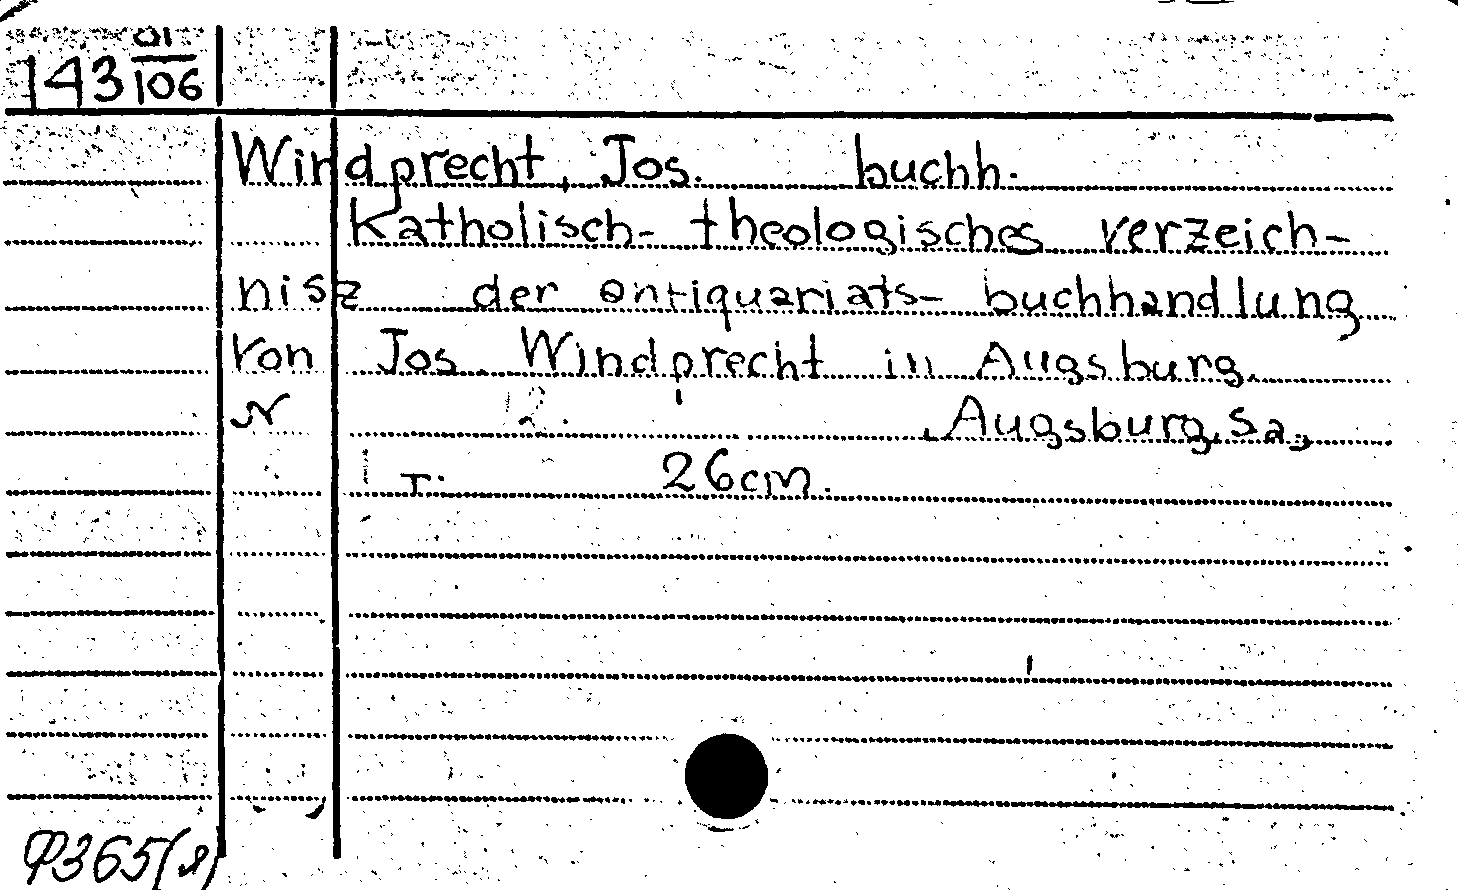 143 01/106
Windprecht, Jos. buchh.
Katholisch- theologisches verzeich-
nisz der antiquariats- buchhandlung
von Jos. Windprecht in Augsburg.
N 12. Augsburg, Sa,
1 T. 26cm.
Ф365(я)